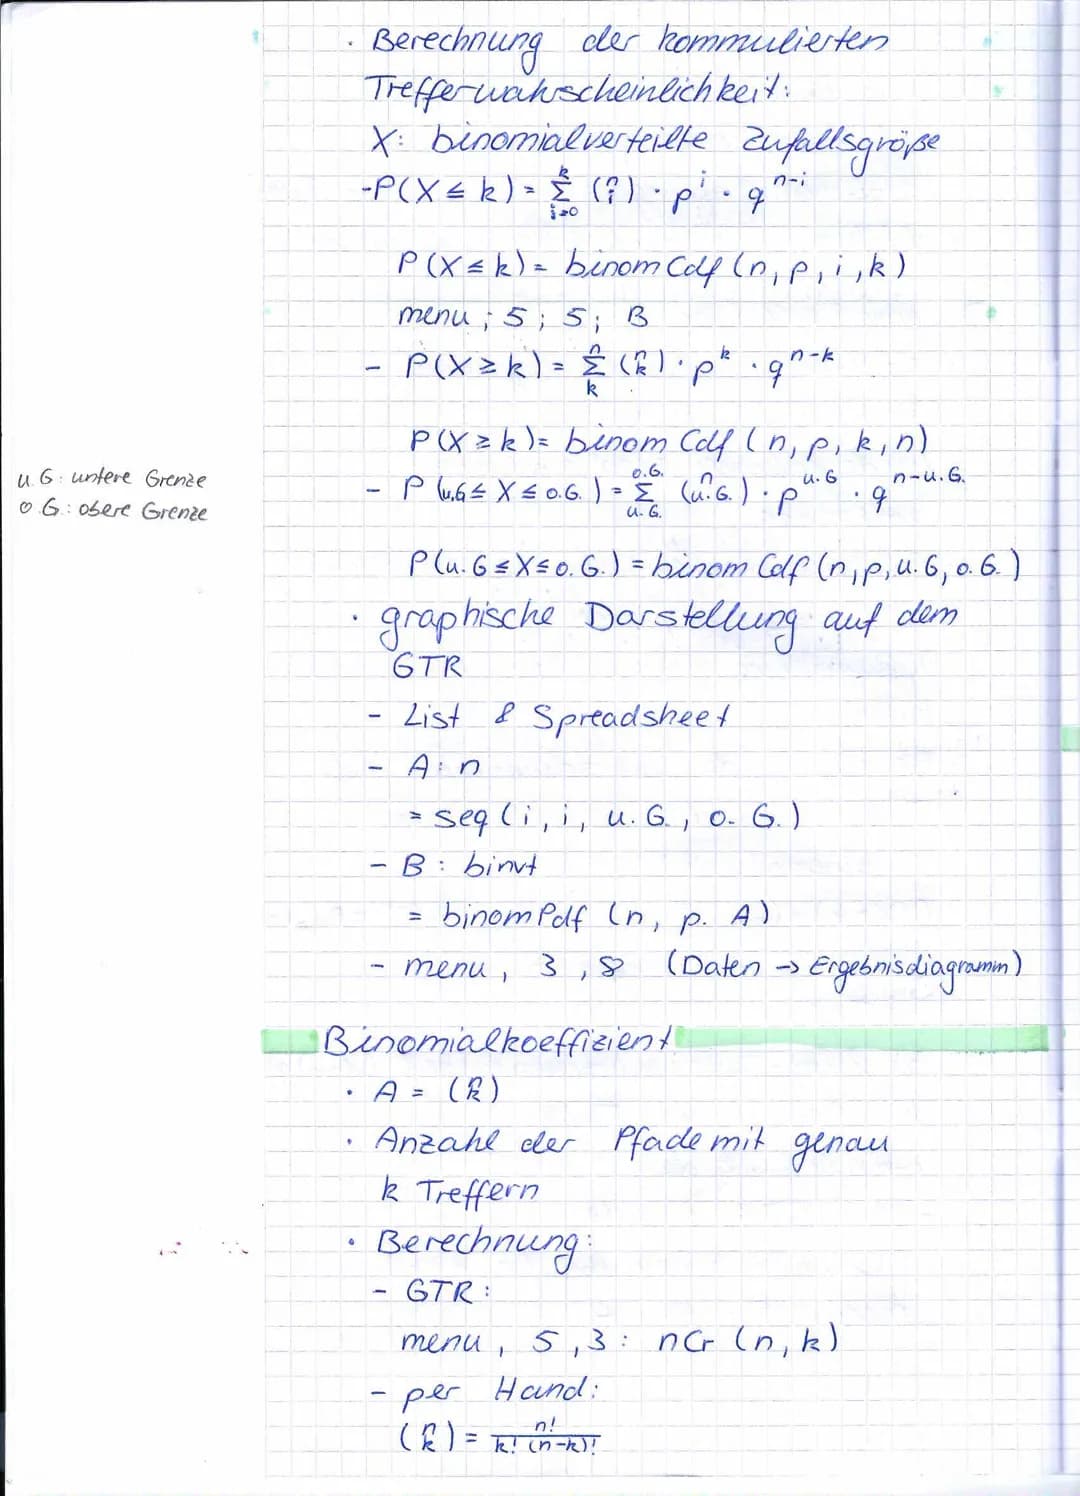 · Berechnung der kommulierten
Trefferwahrscheinlichkeit:
X: binomialverteilte Zufallsgröße
-P(X ≤ k) = ∑_{i=0}^{k} (n über i) · p^i · q^{n-i}
P(X ≤ k) = binomCdf (n, p, i, k)
menu ; 5 ; 5 ; B
- P(X ≥ k) = ∑_{k}^{n} (n über k) · p^k · q^{n-k}
P(X ≥ k) = binom Cdf (n, p, k, n)
u. G.: untere Grenze
o. G.: obere Grenze
- P (u.G ≤ X ≤ o.G.) = ∑_{u.G.}^{o.G.} (n über u.G.) · p^{u.G} · q^{n-u.G.}
P(u.G ≤ X ≤ o.G.) = binom Cdf (n, p, u.G, o.G.)
· graphische Darstellung auf dem
GTR
- List & Spreadsheet
- A: n
= seq (i, i, u. G., o. G.)
- B: binvt
= binomPdf (n, p. A)
- menu, 3, 8 (Daten → Ergebnisdiagramm)
Binomialkoeffizient
· A = (n über k)
· Anzahl der Pfade mit genau
k Treffern
· Berechnung:
- GTR:
menu, 5, 3: nCr (n, k)
- per Hand:
(n über k) = n! / k! (n-k)!